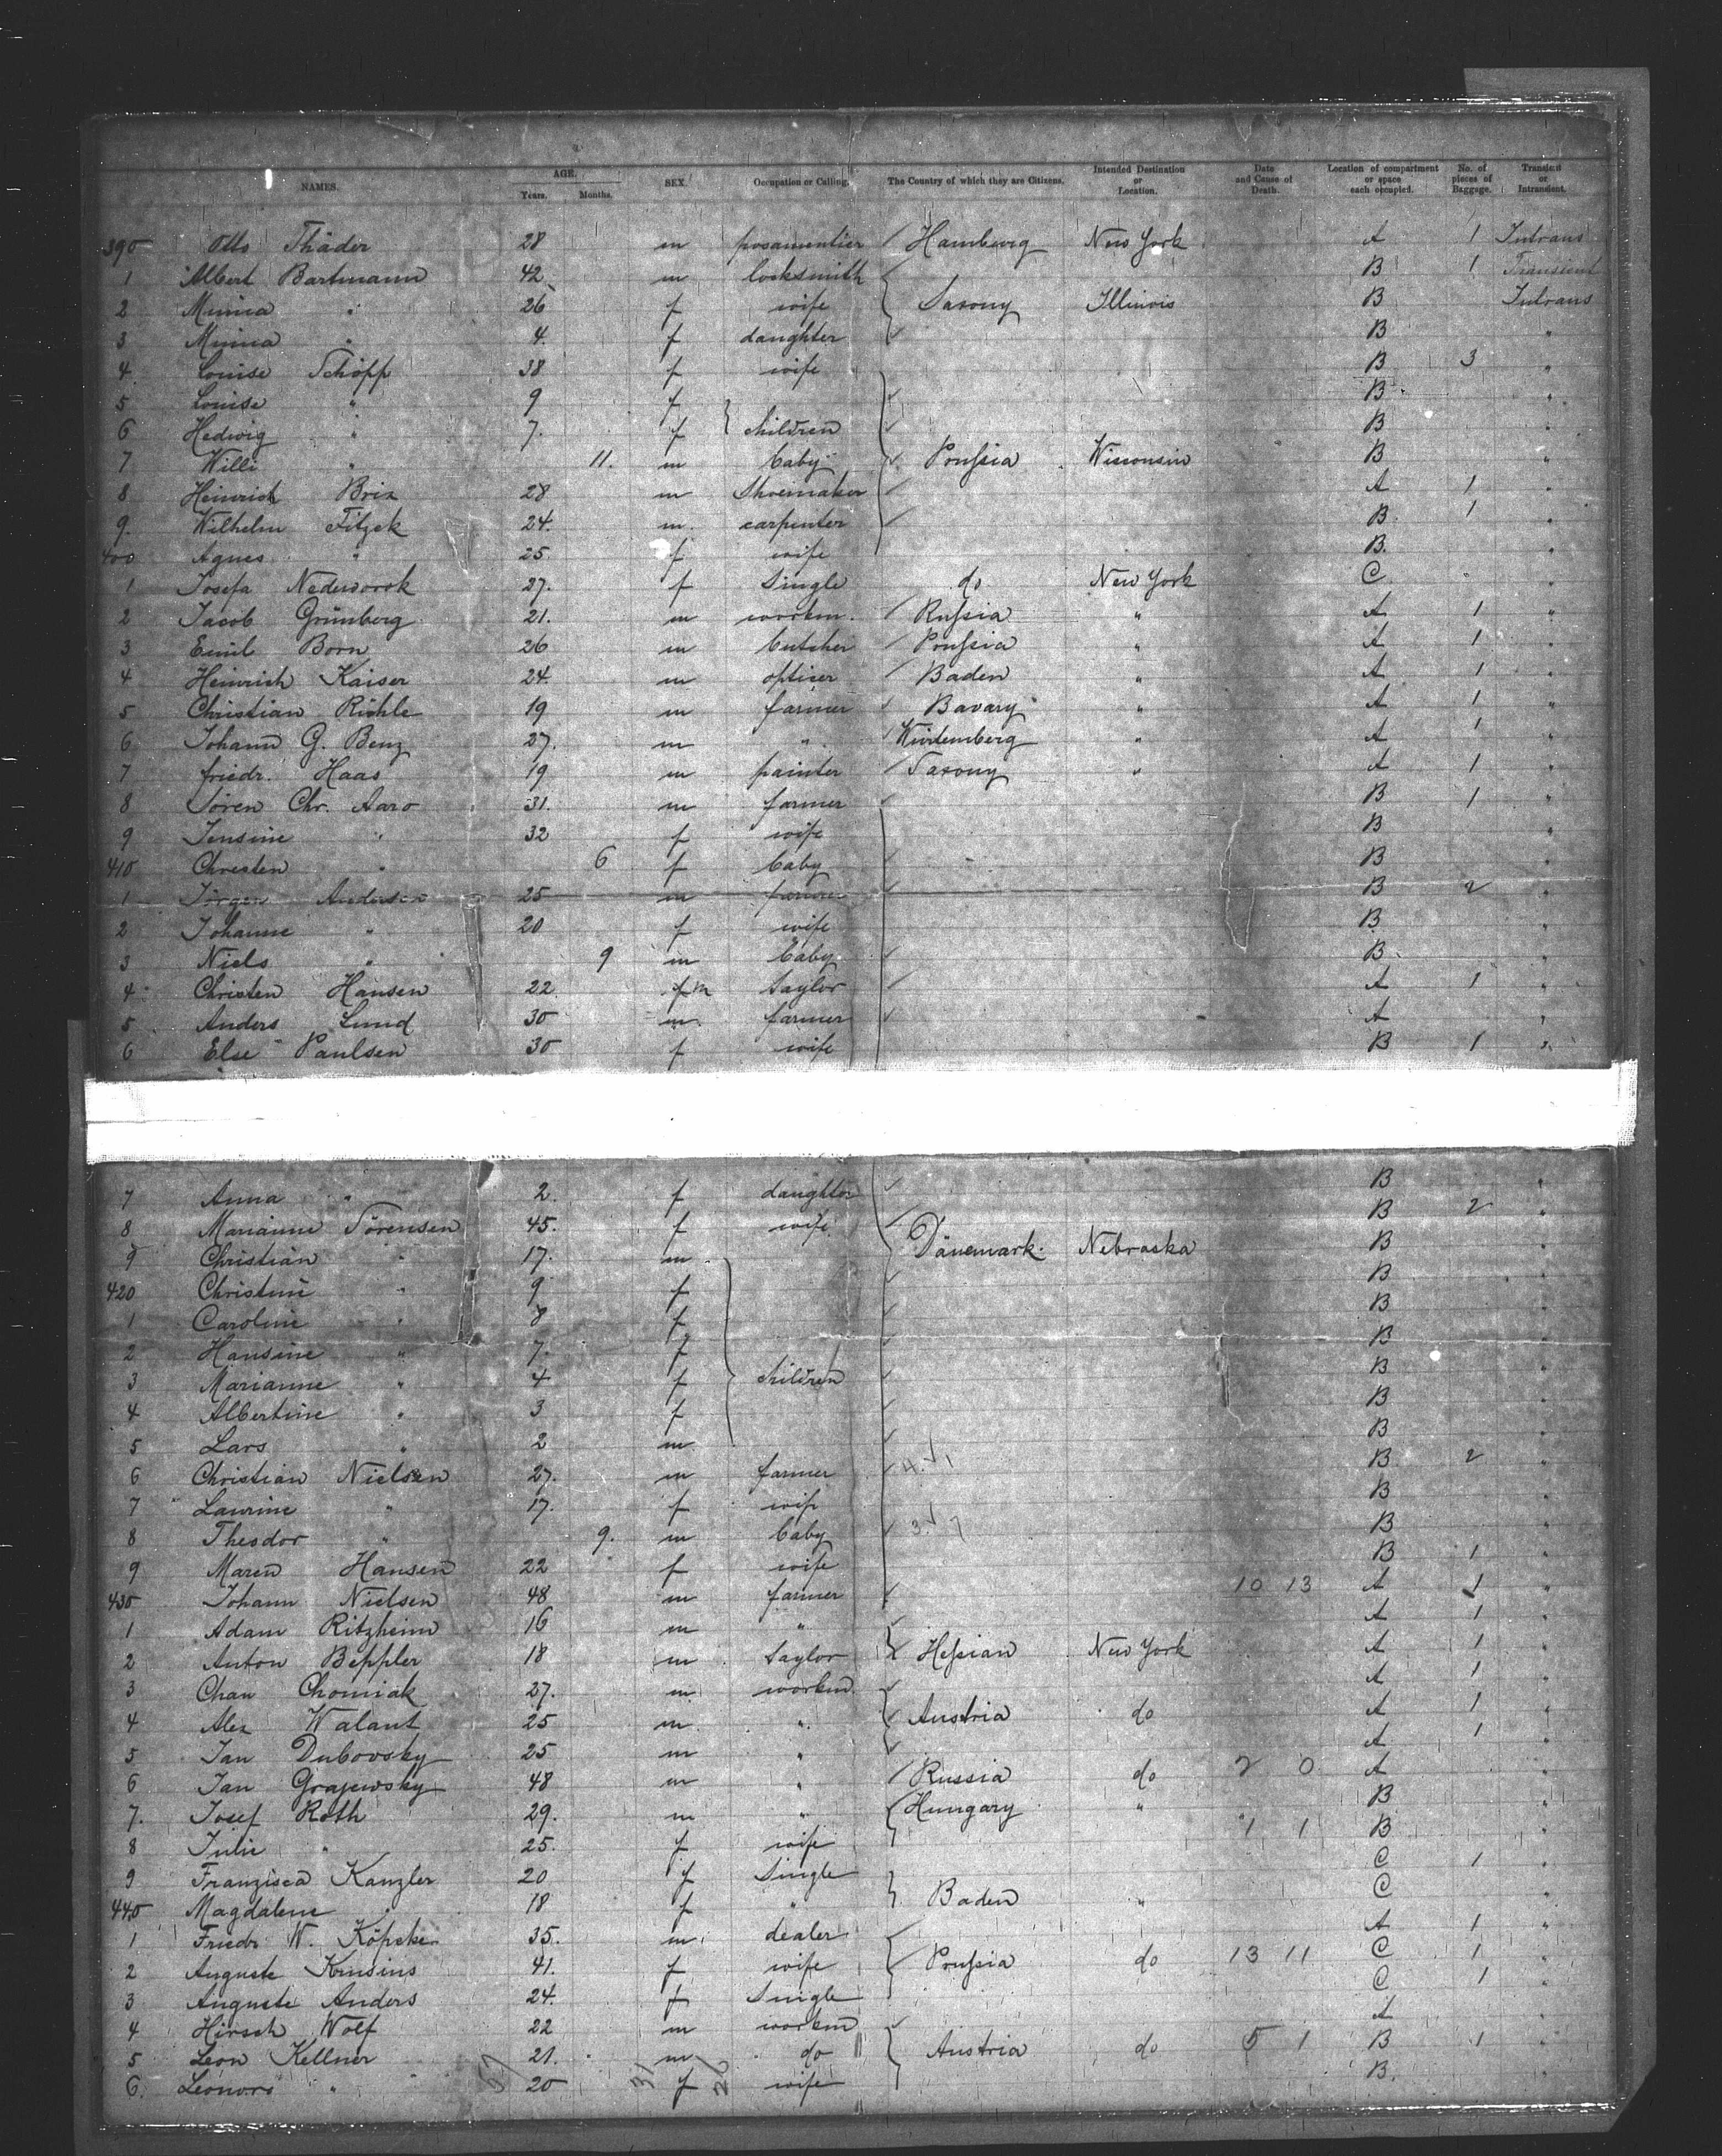 NAMES. AGE. Years. Months. SEX. Occupation or Calling. The Country of which they are Citizens. Intended Destination or Location. Date and Cause of Death. Location of compartment or space each occupied. No. of pieces of Baggage. Transient or Intransient.
390 Otto Thäder 28 m posamentier / Hamburg New York A 1 Intrans
1 Albert Bartmann 42 m locksmith B 1 Transient
2 Minna " 26 f wife Saxony Illinois B Intrans
3 Minna " 4. f daughter B "
4 Louise Schöpp 38 f wife B 3 "
5 Louise " 9 f B "
6 Hedwig " 7. f children B "
7 Willi " 11. m baby Prussia Wisconsin B "
8 Heinrich Brix 28 m Shoemaker A 1 "
9. Wilhelm Fitzek 24. m. carpenter B 1 "
400 Agnes " 25 f wife B. "
1 Josefa Nedeworok 27. f Single do New York C "
2 Jacob Grünberg 21. m workm. / Russia " A 1 "
3 Emil Born 26 m butcher / Prussia " A 1 "
4 Heinrich Kaiser 24. m opticer / Baden " A 1 "
5 Christian Richle 19 m farmer Bavary " A 1 "
6 Johann G. Benz 27. m " / Würtemberg " A 1 "
7 friedr. Haas 19 m painter / Saxony " A 1 "
8 Sören Chr. Aaro 31. m farmer B 1 "
9 Jensine " 32 f wife B "
410 Christen " 6 f baby B "
1 Jörgen Andersen 25 m farmer B 2 "
2 Johanne " 20 f wife B "
3 Niels " 9 m baby B "
4 Christen Hansen 22 f m taylor A 1 "
5 Anders Lund 30 m. farmer A "
6 Else Paulsen 30 f wife B 1 "
7 Anna " 2. f daughter B "
8 Marianne Sörensen 45. f wife B 2 "
9 Christian " 17. m Dänemark. Nebraska B "
420 Christine " 9 f B "
1 Caroline " 8 f B "
2 Hansine " 7. f B "
3 Marianne " 4 f children B "
4 Albertine " 3 f B "
5 Lars " 2 m B "
6 Christian Nielsen 27. m farmer B 2 "
7 Laurine " 17. f wife B "
8 Theodor " 9. m baby B "
9 Maren Hansen 22 f wife B 1 "
430 Johann Nielsen 48 m farmer 10 13 A 1 "
1 Adam Ritzheim 16 m " A 1 "
2 Anton Beppler 18 m taylor Hessian New York A 1 "
3 Chan Chomiak 27. m workm. A 1 "
4 Alex Walant 25 m " Austria do A 1 "
5 Jan Dubovsky 25 m " A 1 "
6 Jan Grajewsky 48 m " / Russia do 2 0 A "
7. Josef Roth 29. m " Hungary " B "
8 Julie " 25. f wife 1 1 B "
9 Franzisca Kanzler 20 f Single C 1 "
440 Magdalene " 18 f " Baden " C "
1 Friedr W. Köpcke 35. m. dealer A 1 "
2 Auguste Krusius 41. f wife Prussia do 13 11 C 1 "
3 Auguste Anders 24. f Single C 1 "
4 Hirsch Wolf 22 m workm A "
5 Leon Kellner 21. m do Austria do 5 1 B 1 "
6. Leonore " 20 f wife B. "
57 31 26